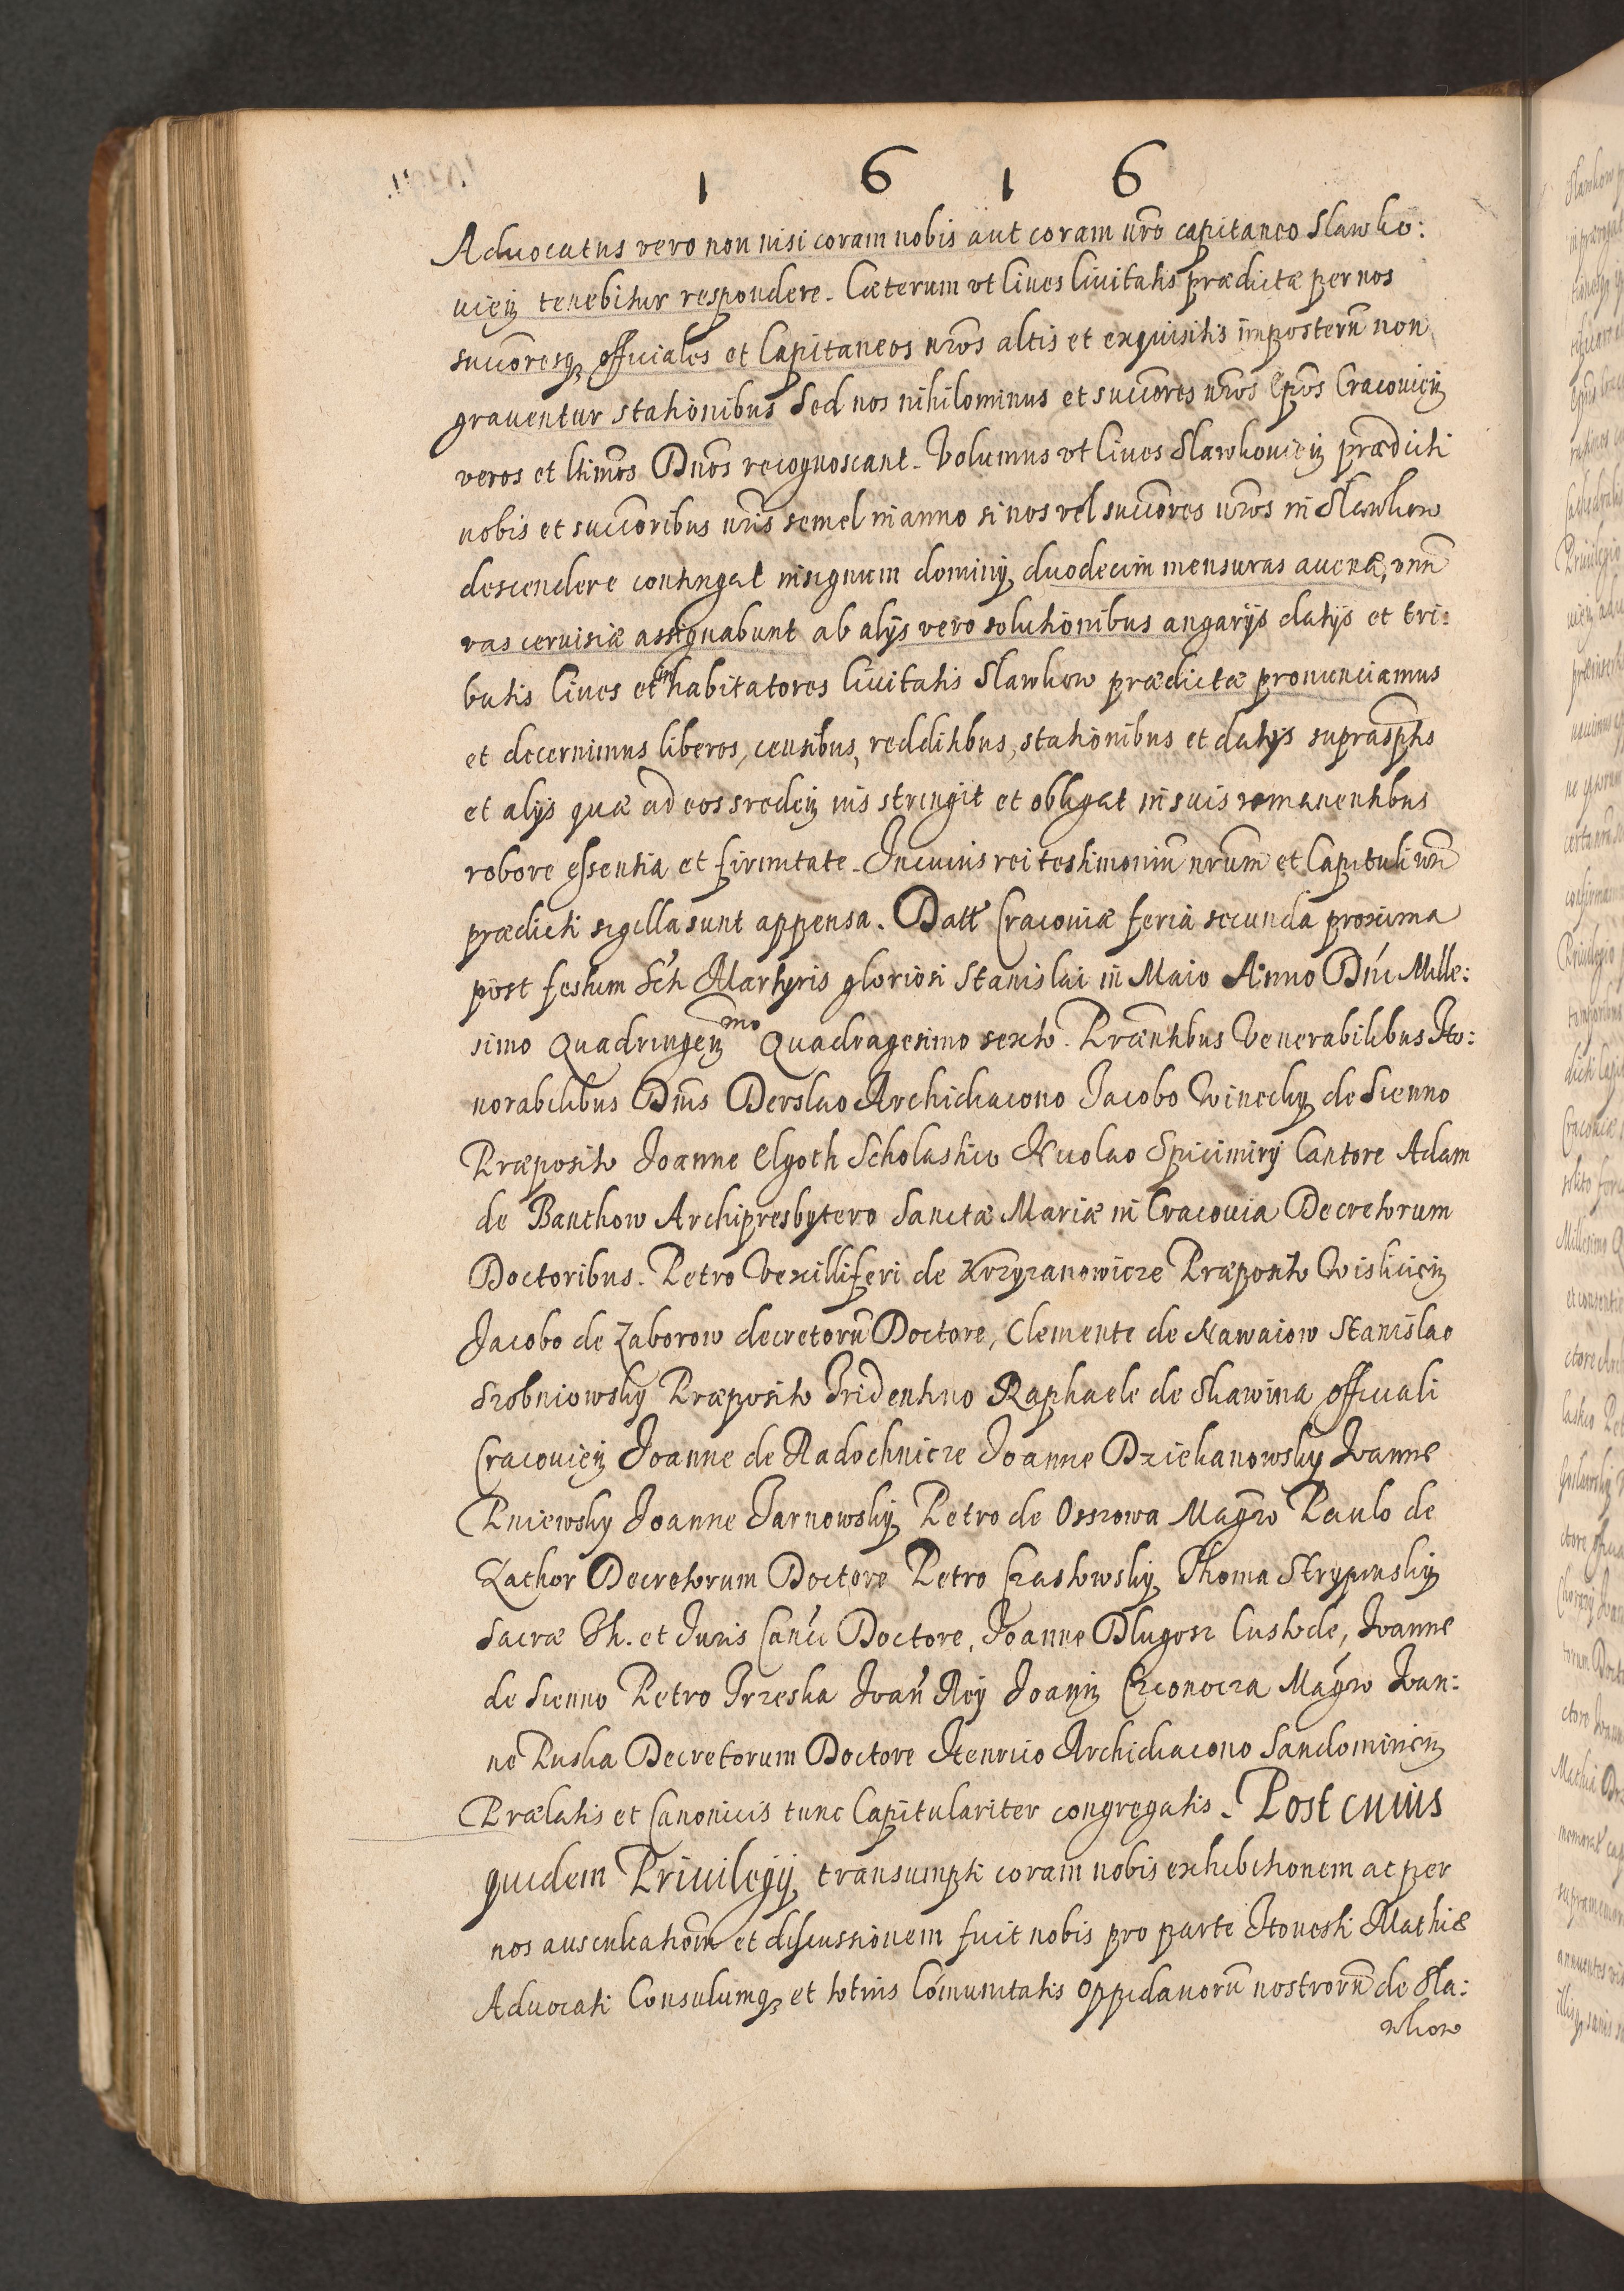 1 6 1 6
Aduocatus vero non nisi coram nobis aut coram nr̃o capitaneo Slawko:
uien̄ tenebitur respondere. Cæterum vt Ciues Ciuitatis prædictæ per nos
succoresq₃ officiales et Capitaneos nr̃os altis et exquisitis imposterũ non
grauentur stationibus Sed nos nihilominus et succores nr̃os Ep̃os Cracouien̄
veros et ltimos Dños recognoscant. Volumus vt Ciues Slawkouien̄ prædicti
nobis et succoribus nr̃is semel in anno si nos vel succores nr̃os in Slawkow
descendere contingat in signum dominij duodecim mensuras auenæ, vnũ
vas ceruisiæ assignabunt ab alijs vero solutionibus angarijs datijs et tri:
butis Ciues et inhabitatores Ciuitatis Slawkow prædictæ pronunciamus
et decernimus liberos, censibus, redditibus, stationibus et datijs suprasptis
et alijs quæ ad eos sredein̄ ius stringit et obligat in suis remanentibus
robore essentia et firmitate. In cuius rei testimoniũ nr̃um et Capituli nr̃i
prædicti sigilla sunt appensa. Datt Cracouiæ feria secunda proxima
post festum Scti Martyris gloriosi Stanislai in Maio Anno Dñi Mille:
simo Quadringen̄mo Quadragesimo sexto. Præntibus Venerabilibus Ho:
norabilibus Dñis Derslao Archidiacono Jacobo Winecky de Sienno
Præposito Joanne Elgoth Scholastico Nicolao Spicimiry Cantore Adam
de Banthow Archipresbytero Sanctæ Mariæ in Cracouia Decretorum
Doctoribus. Petro Vexilliferi de Krzyzanowicze Præposito Wislicien̄
Jacobo de Zaborow decretorũ Doctore, Clemente de Nawaiow Stanislao
Srobniowsky Præposito Tridentino Raphaele de Skawina officiali
Cracouien̄ Joanne de Radochnicze Joanne Dziekanowsky Joanne
Pniewsky Joanne Tarnowsky Petro de Osszowa Magr̃o Paulo de
Zathor Decretorum Doctore Petro Chrastowsky Thoma Strypinsky
Sacræ Th. et Juris Canci Doctore, Joanne Dlugosz Custode, Joanne
de Sienno Petro Trzeska Joañ Rey Joann̄ Czeonocza Magr̃o Joan:
ne Puska Decretorum Doctore Henrico Archidiacono Sandomirien̄
Prælatis et Canonicis tunc Capitulariter congregatis. Post cuius
quidem Priuilegij transumpti coram nobis exhibitionem ac per
nos auscultatiom̃ et discussionem fuit nobis pro parte Honesti Mathiæ
Aduocati Consulumq₃ et totius Cõmunitatis oppidanorũ nostrorũ de Sla:
wkow